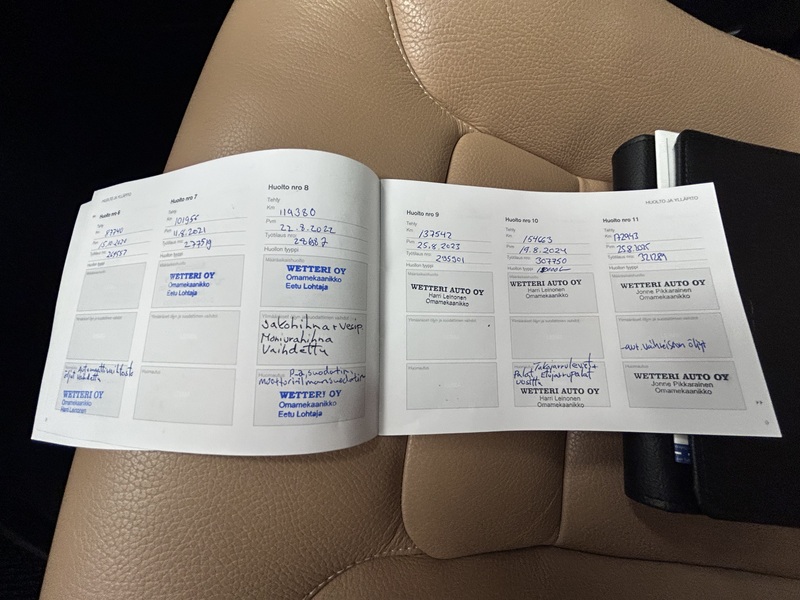 HUOLTO JA YLLÄPITO
Huolto nro 6
Km
87740
Pvm
Työtilaus nro:
Huollon tyyppi
Automaattivaihteisto
öljyt vaihdettu
WETTERI OY
Omamekaanikko
Harri Leinonen
Huolto nro 7
Tehty
Km
101956
Pvm
11.8.2021
Työtilaus nro:
Huollon tyyppi
WETTERI OY
Omamekaanikko
Eetu Lohtaja
Huolto nro 8
Tehty
Km
119380
Pvm
22.8.2022
Työtilaus nro:
Huollon tyyppi
WETTERI OY
Omamekaanikko
Eetu Lohtaja
Jakohihna + vesip
Moniurahihna
Vaihdettu
p.a. suodatin
moottorinilmansuodatin
WETTERI OY
Omamekaanikko
Eetu Lohtaja
HUOLTO JA YLLÄPITO
Huolto nro 9
Tehty
Km
137542
Pvm
25.8.2023
Työtilaus nro:
295301
Huollon tyyppi
WETTERI AUTO OY
Harri Leinonen
Omamekaanikko
Huolto nro 10
Tehty
Km
154663
Pvm
19.8.2024
Työtilaus nro:
307750
Huollon tyyppi
WETTERI AUTO OY
Harri Leinonen
Omamekaanikko
Takajarrulevyt +
Palat, Etujarrupalat
uusittu
WETTERI AUTO OY
Harri Leinonen
Omamekaanikko
Huolto nro 11
Tehty
Km
172943
Pvm
25.8.2025
Työtilaus nro:
321289
Huollon tyyppi
WETTERI AUTO OY
Jonne Pikkarainen
Omamekaanikko
-aut. vaihteiston öljyt
WETTERI AUTO OY
Jonne Pikkarainen
Omamekaanikko